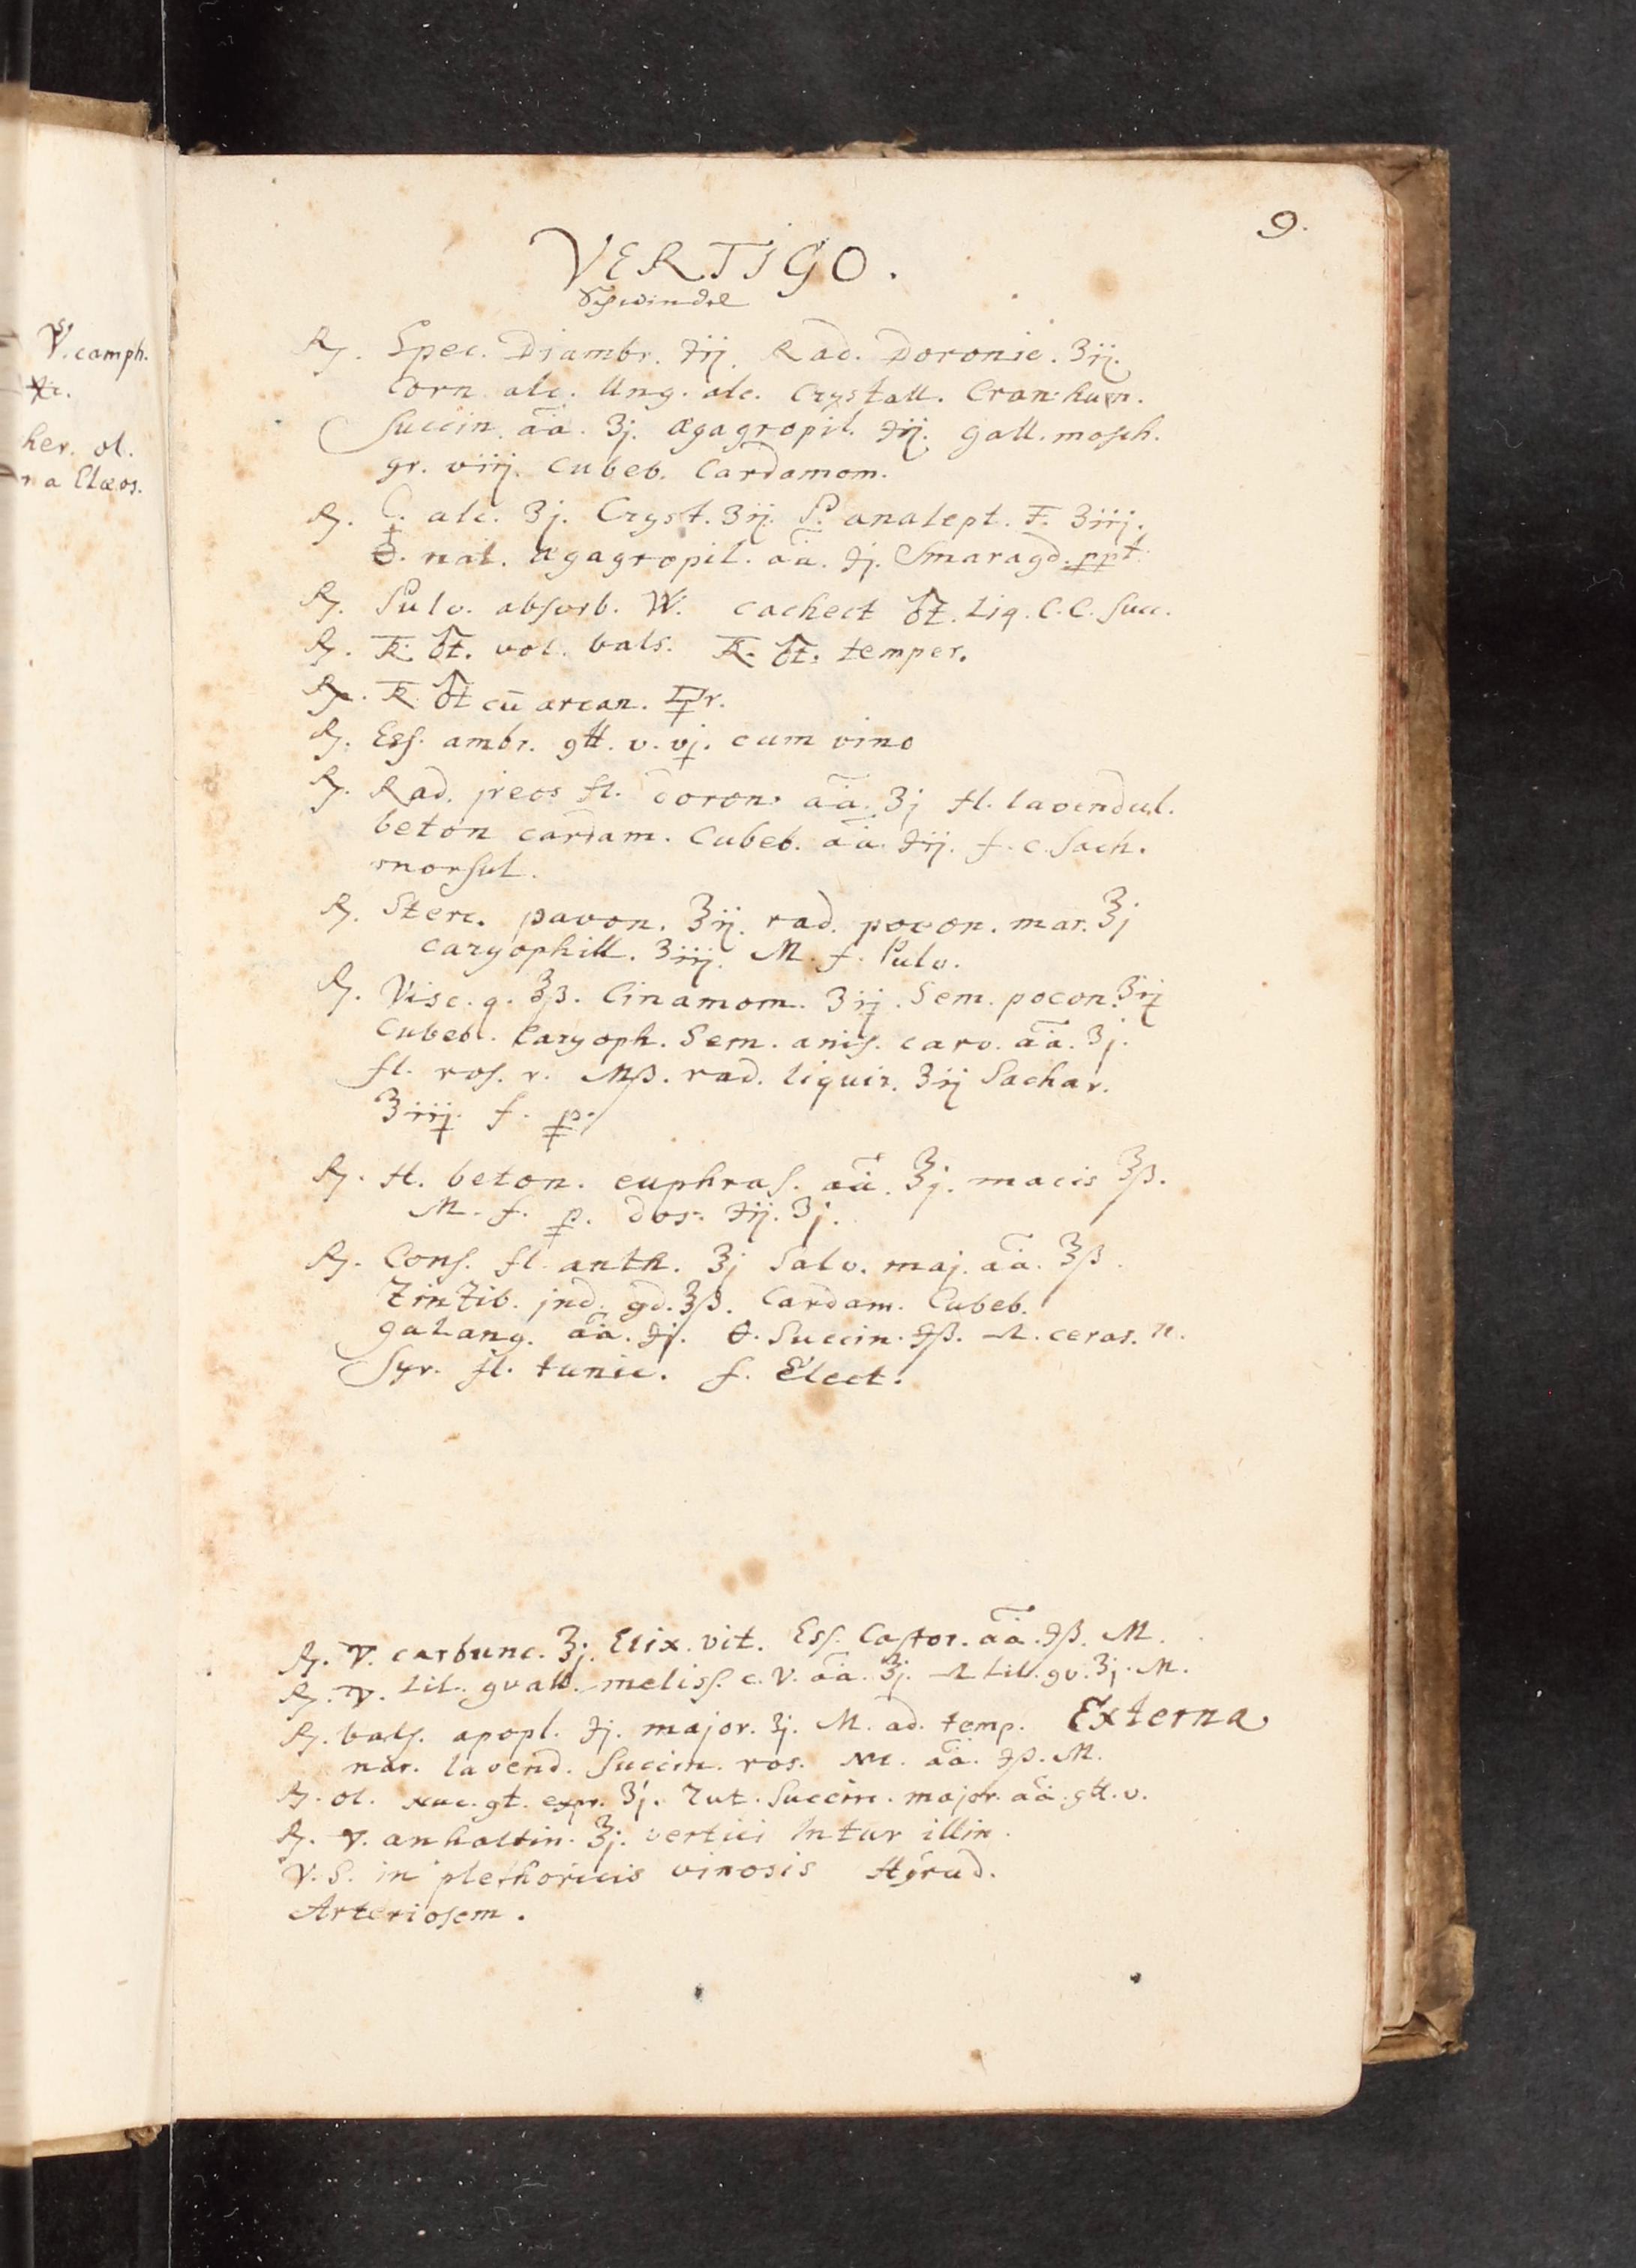 9.
VERTIGO.
Schwindel
℞. Spec. Diambr. ℈ij. Rad. Doronic. ʒij.
Corn. alc. Ung. alc. Crystall. Cran. hum.
Succin. āā. ʒj. ægagropil. ℈ij. gall. mosch.
gr. viij. Cubeb. Cardamom.
℞. C. alc. ʒj. Cryst. ʒij. P. analept. F. ʒiij.
nat. ægagropil. āā. ℈j. Smaragd. ppt.
℞. Pulv. absorb. W. cachect Liq. C. C. Succ.
℞. vol. bals. temper.
℞. cū arcan. 
℞. Ess. ambr. gtt. v. vj. cum vino
℞. Rad. jreos fl. doron. āā. ʒj fl. lavendul.
beton cardam. Cubeb. āā. ℈ij. f. c. Sach.
morsul.
℞. Sterc. pavon. ℥ij. rad. poeon. mar. ℥j
caryophill. ʒiij. M. f. Pulv.
℞. Visc. q. ℥ß. Cinamom. ʒij. Sem. poeon. ʒij
Cubeb. Caryoph. Sem. anis. carv. āā. ʒj.
fl. ros. r. Mß. rad. liquir. ʒij Sachar.
℥iij. f. p.
℞. fl. beton. euphras. āā. ℥j. macis ℥ß.
M. f. p. dos. ℈ij. ʒj.
℞. Cons. fl. anth. ℥j Salv. maj. āā. ℥ß.
Zinzib. jnd. gd. ℥ß. Cardam. Cubeb.
galang. āā. ℈j. Succin. ℈ß. ceras. n.
Syr. fl. tunic. f. Elect.
℞. carbunc. ℥j. Elix. vit. Ess. Castor. āā. ℈ß. M.
℞. Lil. gvall. meliss. c. V. āā. ℥j. Lil. gv. ʒj. M.
℞. bals. apopl. ℈j. major. ʒj. M. ad. temp. Externa
nar. lavend. Succin. ros. āā. ℈ß. M.
℞. ol. nuc. expr. ʒj. rut. Succin. major. āā. gtt. v.
℞. anhaltin. ℥j. vertici illin.
V. S. in plethoricis vinosis Hyrud.
Arteriosem.
V. camph.
her. ol.
Elæos.